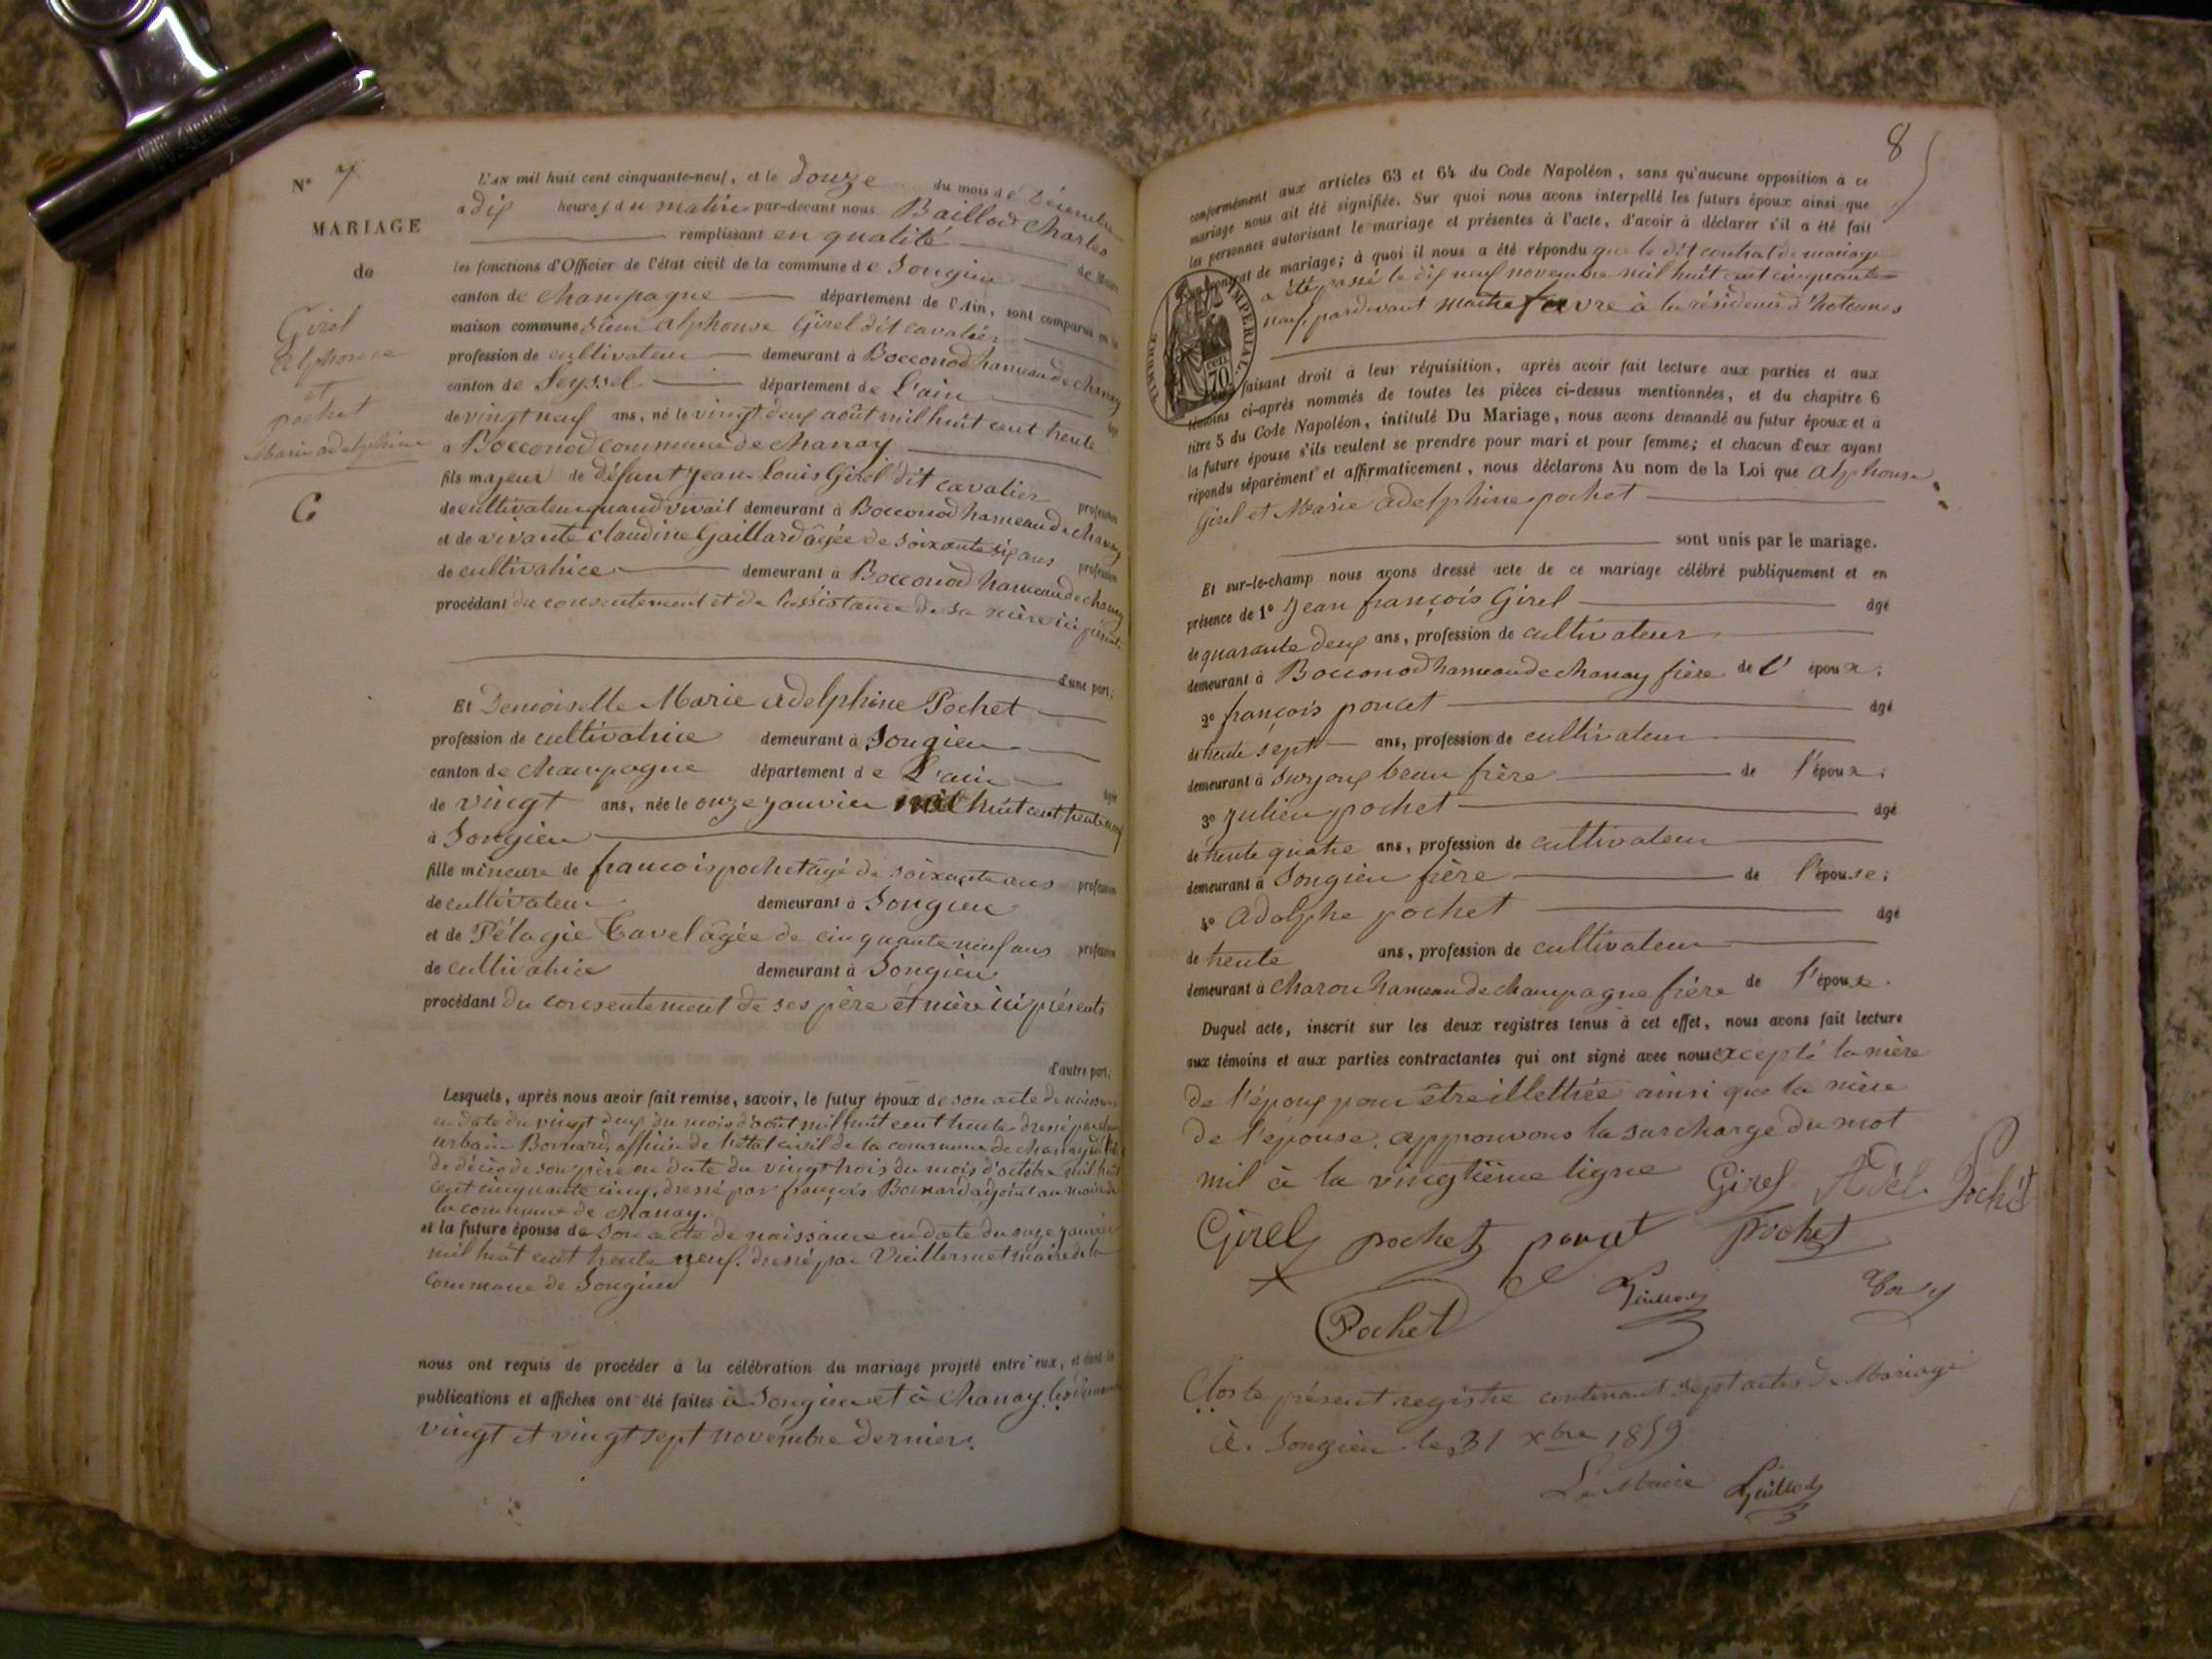 N° 7
MARIAGE
de
Girel
Alphonse
et
pochet
Marie adelphine
L'AN mil huit cent cinquante-neuf, et le douze du mois de Décembre
a dix heures du matin par-devant nous Baillod Charles
remplissant en qualité de Maire
les fonctions d'Officier de l'état civil de la commune de Songieu
canton de Champagne département de l'Ain, sont comparus en la
maison commune, Sieur alphonse Girel dit cavalier
profession de cultivateur demeurant à Bocconod hameau de Chanay
canton de Seyssel département de L'ain
de vingt neuf ans, né le vingt deux août mil huit cent trente
à Bocconod commune de Chanay
fils majeur de défunt Jean Louis Girel dit cavalier profession
de cultivateur quand vivait demeurant à Bocconod hameau de Chanay
et de vivante claudine Gaillard âgée de soixante six ans profession
de cultivatrice demeurant à Bocconod hameau de chanay
procédant du consentement et de l'assistance de sa mère ici présente
d'une part;
Et Demoiselle Marie adelphine Pochet
profession de cultivatrice demeurant à Songieu
canton de Champagne département de L'ain
de vingt ans, née le onze janvier mil huit cent trente neuf
à Songieu
fille mineure de francois pochet âgé de soixante ans profession
de cultivateur demeurant à Songieu
et de Pélagie Cavel âgée de cinquante neuf ans profession
de cultivatrice demeurant à Songieu
procédant du consentement de ses père et mère ici présents
d'autre part;
Lesquels, après nous avoir fait remise, savoir, le futur époux de son acte de naissance
en date du vingt deux du mois d'août mil huit cent trente dressé par
urbain Bornard, officier de l'état civil de la commune de Chanay
de décès de son père en date du vingt trois du mois d'octobre mil huit
cent cinquante cinq, dressé par françois Bornard adjoint au maire de
la commune de Chanay.
et la future épouse de son acte de naissance en date du onze janvier
mil huit cent trente neuf. dressé par Vuillermet maire de la
commune de Songieu
nous ont requis de procéder à la célébration du mariage projeté entre eux, et dont les
publications et affiches ont été faites à Songieu et à Chanay les dimanches
vingt et vingt sept novembre dernier.
8
conformément aux articles 63 et 64 du Code Napoléon, sans qu'aucune opposition à ce
mariage nous ait été signifiée. Sur quoi nous avons interpellé les futurs époux ainsi que
les personnes autorisant le mariage et présentes à l'acte, d'avoir à déclarer s'il a été fait
un contrat de mariage; à quoi il nous a été répondu que le dit contrat de mariage
a été passé le dix neuf novembre mil huit cent cinquante
neuf, pardevant maitre favre à la résidence d'hotonnes
TIMBRE IMPERIAL
70 cen
faisant droit à leur réquisition, après avoir fait lecture aux parties et aux
témoins ci-après nommés de toutes les pièces ci-dessus mentionnées, et du chapitre 6
titre 5 du Code Napoléon, intitulé Du Mariage, nous avons demandé au futur époux et à
la future épouse s'ils veulent se prendre pour mari et pour femme; et chacun d'eux ayant
répondu séparément et affirmativement, nous déclarons Au nom de la Loi que Alphonse
Girel et Marie adelphine pochet
sont unis par le mariage.
Et sur-le-champ nous avons dressé acte de ce mariage célébré publiquement et en
présence de 1° Jean françois Girel âgé
de quarante deux ans, profession de cultivateur
demeurant à Bocconod hameau de chanay frère de l'époux;
2° françois poncet âgé
de trente sept ans, profession de cultivateur
demeurant à Surjoux beau frère de l'époux;
3° Julien pochet âgé
de trente quatre ans, profession de cultivateur
demeurant à Songieu frère de l'épouse;
4° Adolphe pochet âgé
de trente ans, profession de cultivateur
demeurant à Charon hameau de champagne frère de l'épouse.
Duquel acte, inscrit sur les deux registres tenus à cet effet, nous avons fait lecture
aux témoins et aux parties contractantes qui ont signé avec nous excepté la mère
de l'époux pour être illettrée ainsi que la mère
de l'épouse. approuvons la surcharge du mot
mil à la vingtième ligne Girel Adel. Pochet
Girel pochet poncet pochet
Pochet
Clos le présent registre contenant sept actes de Mariage
à Songieu le 31 xbre 1859
Le Maire